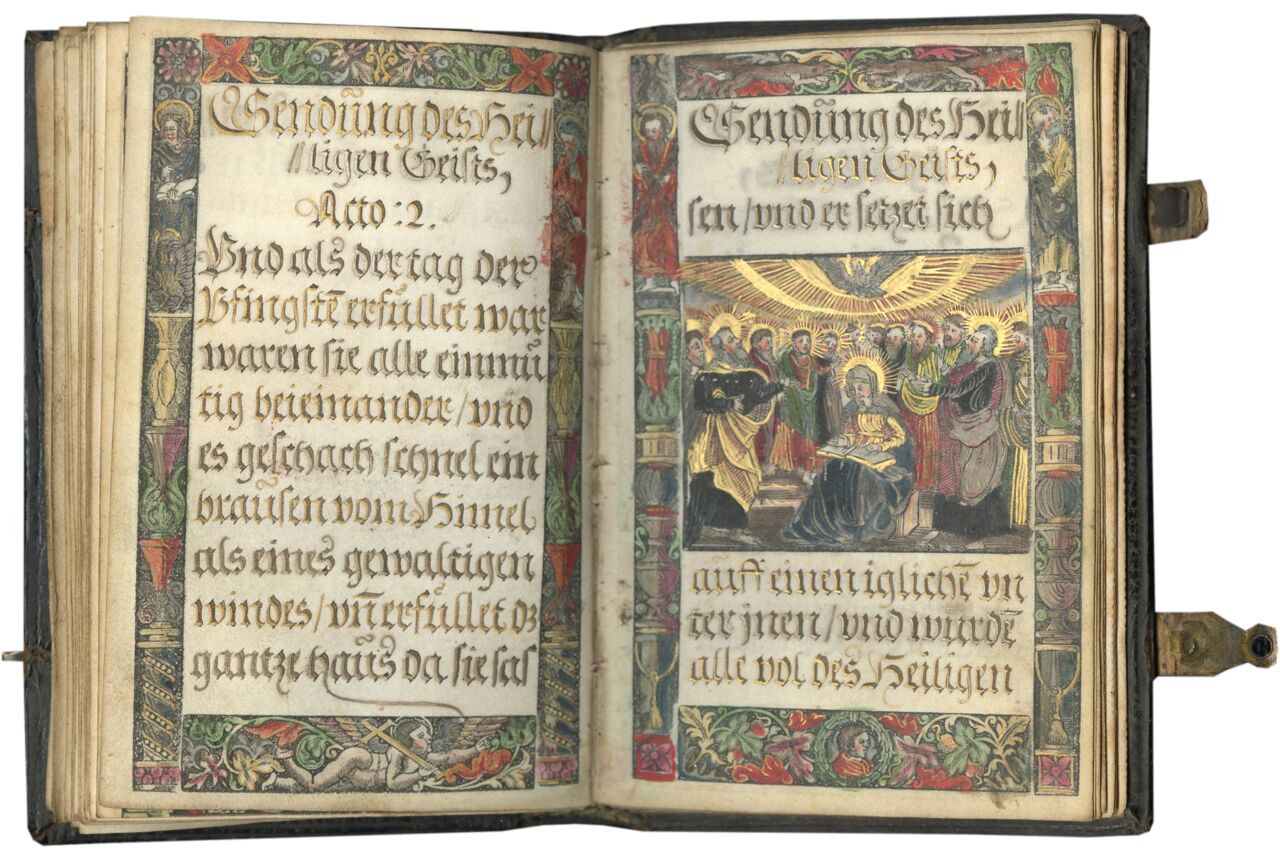 Sendŭng des Hei//
//ligen Geists,
Acto: 2.
Vnd als der tag der
Pfingstē erfŭllet war
waren sie alle einmŭ
tig beieinander/vnd
es geschach schnel ein
braŭsen vom Himel,
als eines gewaltigen
windes/vn̄ erfŭllet dz
gantze haŭs da sie sas
Sendŭng des Hei//
//ligen Geists,
sen/vnd er setzet sich
aŭff einen iglichē vn
ter jnen/vnd wurdē
alle vol des Heiligen